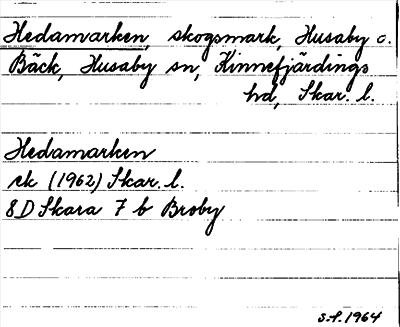 Hedamarken, skogsmark, Husaby o.
Bäck, Husaby sn, Kinnefjärdings
hd, Skar. l.
Hedamarken
ek (1962) Skar. l.
8D Skara 7 b Broby
S.F. 1964